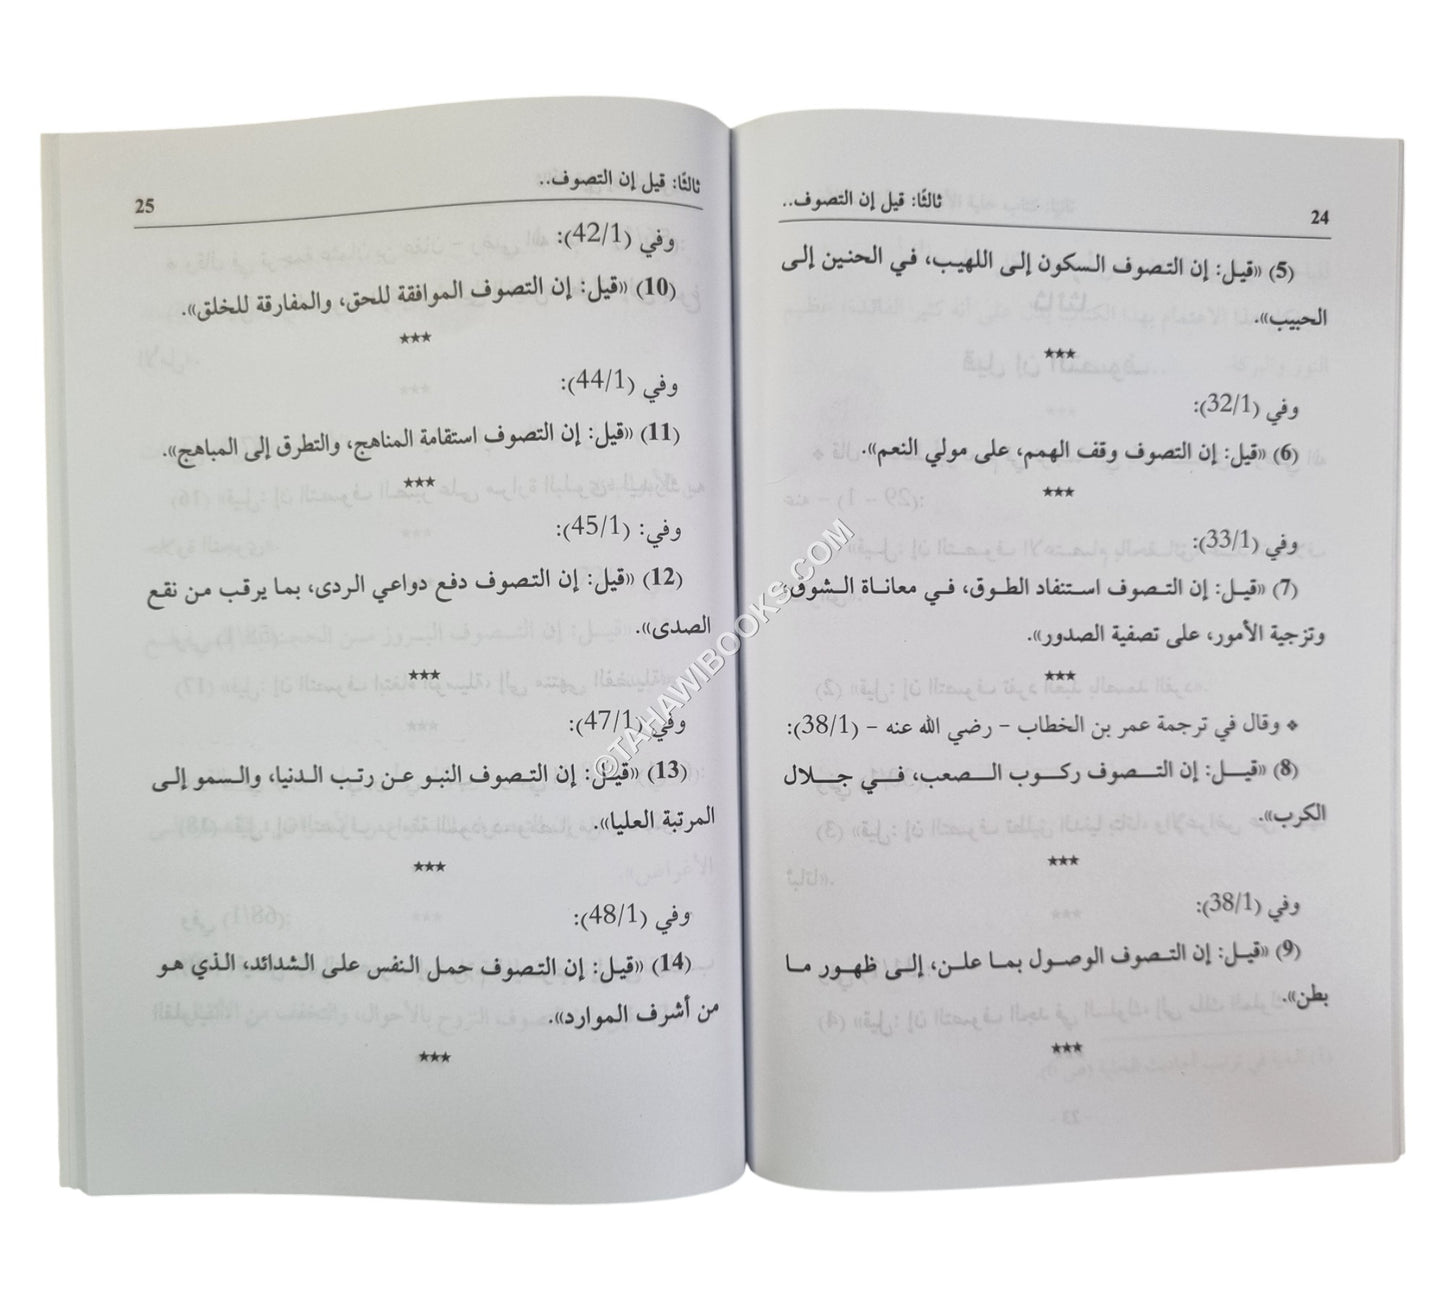 24
ثالثًا: قيل إن التصوف..
(5) «قيل: إن التصوف السكون إلى اللهيب، في الحنين إلى
الحبيب».
***
وفي (32/1):
(6) «قيل: إن التصوف وقف الهمم، على مولي النعم».
***
وفي (33/1):
(7) «قيل: إن التصوف استنفاد الطوق، في معاناة الشوق،
وتزجية الأمور، على تصفية الصدور».
***
* وقال في ترجمة عمر بن الخطاب - رضي الله عنه - (38/1):
(8) «قيل: إن التصوف ركوب الصعب، في جلال
الكرب».
***
وفي (38/1):
(9) «قيل: إن التصوف الوصول بما علن، إلى ظهور ما
بطن».
***
ثالثًا: قيل إن التصوف..
25
وفي (42/1):
(10) «قيل: إن التصوف الموافقة للحق، والمفارقة للخلق».
***
وفي (44/1):
(11) «قيل: إن التصوف استقامة المناهج، والتطرق إلى المباهج».
***
وفي: (45/1):
(12) «قيل: إن التصوف دفع دواعي الردى، بما يرقب من نقع
الصدى».
***
وفي (47/1):
(13) «قيل: إن التصوف النبو عن رتب الدنيا، والسمو إلى
المرتبة العليا».
***
وفي (48/1):
(14) «قيل: إن التصوف حمل النفس على الشدائد، الذي هو
من أشرف الموارد».
***
©TAHAWIBOOKS.COM